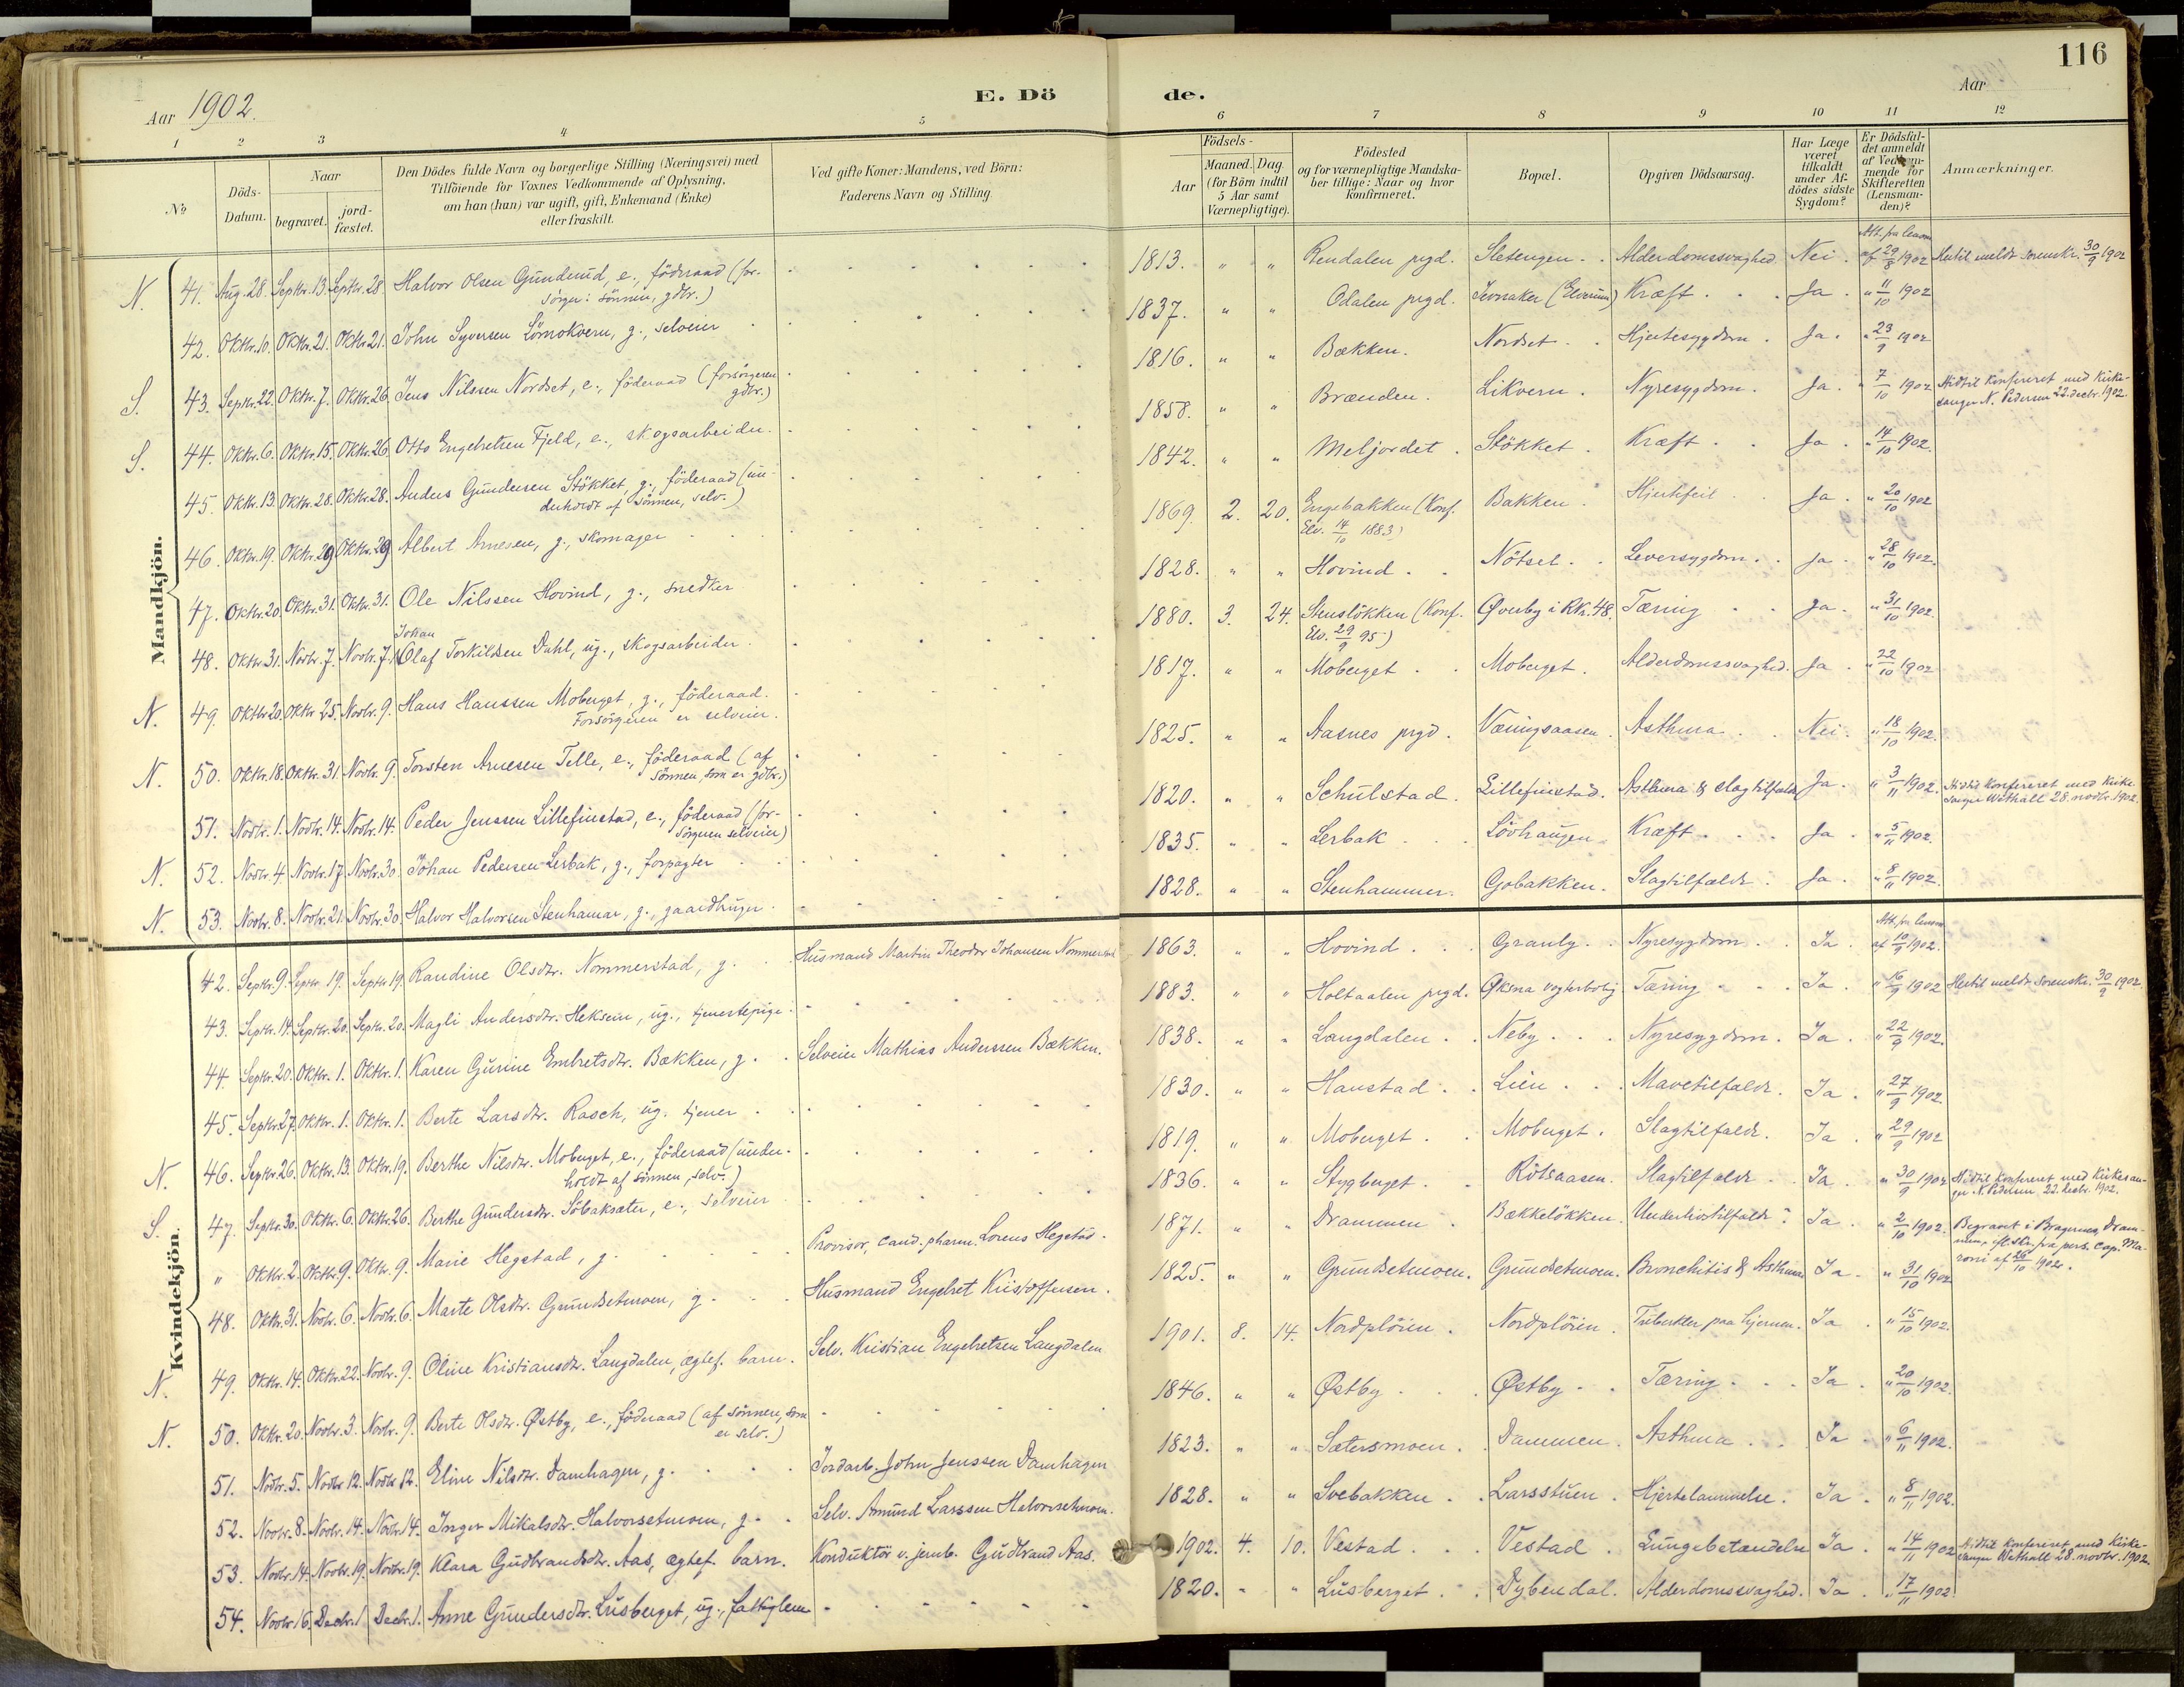 116
Aar 1902.
E. Döde.
Aar
1 2 3 4 5 6 7 8 9 10 11 12
No
Döds-Datum.
Naar
begravet.
jordfæstet.
Den Dödes fulde Navn og borgerlige Stilling (Næringsvei) med
Tilföiende for Voxnes Vedkommende af Oplysning,
om han (hun) var ugift, gift, Enkemand (Enke)
eller fraskilt.
Ved gifte Koner: Mandens, ved Börn:
Faderens Navn og Stilling.
Födsels-
Aar
Maaned. Dag.
(for Börn indtil
5 Aar samt
Værnepligtige).
Födested
og for værnepligtige Mandska-
ber tillige: Naar og hvor
konfirmeret.
Bopæl.
Opgiven Dödsaarsag.
Har Læge
været
tilkaldt
under Af-
dödes sidste
Sygdom?
Er Dödsfal-
det anmeldt
af Vedkom-
mende for
Skifteretten
(Lensman-
den)?
Anmærkninger.
Mandkjön.
N. 41. Aug. 28. Septbr. 13. Septbr. 28. Halvor Olsen Gunderud, e., föderaad (for- 1813. " " Rendalen prgd. Sletengen. Alderdomssvaghed. Nei. Att. fra lensm. af 29/8 1902 Hertil meldt sorenskr. 30/9 1902
sörger: sönnen, gdbr.)
42. Oktbr. 10. Oktbr. 21. Oktbr. 21. John Syversen Lömokvern, g., selveier 1837. " " Odalen prgd. (Elverum) Kræft. Ja. " 11/10 1902
S. 43. Septbr. 22. Oktbr. 7. Oktbr. 26. Jens Nilssen Nordset, e., föderaad (forsörgeren 1816. " " Bækken. Nordset. Hjertesygdom. Ja. " 23/9 1902
gdbr.)
S. 44. Oktbr. 6. Oktbr. 15. Oktbr. 26. Otto Engebretsen Fjeld, e., skogsarbeider. 1858. " " Brænden. Likvern. Nyresygdom. Ja. " 7/10 1902 Hidtil konfereret med kirke-
sanger N. Pedersen 22. decbr. 1902.
45. Oktbr. 13. Oktbr. 28. Oktbr. 28. Anders Gundersen Stökket, g., föderaad (un- 1842. " " Meljordet. Stökket. Kræft. Ja. " 14/10 1902.
derholdt af sönnen, selv.)
46. Oktbr. 19. Oktbr. 29 Oktbr. 29 Albert Arnesen, g., skomager 1869. 2. 20. Engebakken (Konf. Bakken. Hjertefeil. Ja. " 20/10 1902
Elv. 14/10 1883)
47. Oktbr. 20. Oktbr. 31. Oktbr. 31. Ole Nilssen Hovind, g., snedker 1828. " " Hovind. Nötset. Leversygdom. Ja. " 28/10 1902.
Johan
48. Oktbr. 31. Novbr. 7. Novbr. 7. Olaf Torkildsen Dahl, ug., skogsarbeider. 1880. 3. 24. Stenslökken (Konf. Øverby i Rkr. 48. Tæring Ja. " 31/10 1902.
Elv. 29/9 95)
N. 49. Oktbr. 20. Oktbr. 25. Novbr. 9. Hans Hanssen Moberget, g., föderaad. 1817. " " Moberget. Moberget. Alderdomssvaghed. Ja. " 22/10 1902
Forsörgeren er selveier.
N. 50. Oktbr. 18. Oktbr. 31. Novbr. 9. Torsten Arnesen Telle, e., föderaad (af 1825. " " Aasnes prgd. Væringsaasen. Asthma. Nei. " 18/10 1902.
sönnen, som er gdbr.)
51. Novbr. 1. Novbr. 14. Novbr. 14. Peder Jenssen Lillefinstad, e., föderaad (for- 1820. " " Schulstad. Lillefinstad. Asthma & slagtilfælde Ja. " 3/11 1902. Hidtil konfereret med kirke-
sörgeren selveier) sanger Wethall 28. novbr. 1902.
N. 52. Novbr. 4. Novbr. 17. Novbr. 30. Johan Pedersen Lerbak, g., forpagter 1835. " " Lerbak. Lövhaugen. Kræft. Ja. " 5/11 1902.
N. 53. Novbr. 8. Novbr. 21. Novbr. 30. Halvor Halvorsen Stenhamar, g., gaardbruger. 1828. " " Stenhammer. Gobakken. Slagtilfælde. Ja. " 8/11 1902.
Kvindekjön.
42. Septbr. 9. Septbr. 19. Septbr. 19. Randine Olsdtr. Nommerstad, g. Husmand Martin Theodor Johansen Nommerstad 1863. " " Hovind. Granly. Nyresygdom. Ja. Att. fra lensm. af 10/9 1902.
43. Septbr. 14. Septbr. 20. Septbr. 20. Magli Andersdtr. Heksem, ug., tjenestepige. 1883. " " Holtaalen prgd. Øksna vogterbolig Tæring Ja. " 16/9 1902 Hertil meldt sorenskr. 30/9 1902.
44. Septbr. 20. Oktbr. 1. Oktbr. 1. Karen Gurine Embretsdtr. Bækken, g. Selveier Mathias Anderssen Bækken. 1838. " " Langdalen. Neby. Nyresygdom. Ja. " 22/9 1902.
45. Septbr. 27. Oktbr. 1. Oktbr. 1. Berte Larsdtr. Rasch, ug. tjener 1830. " " Hanstad. Lien. Mavetilfælde. Ja. " 27/9 1902.
N. 46. Septbr. 26. Oktbr. 13. Oktbr. 19. Berthe Nilsdtr. Moberget, e., föderaad (under- 1819. " " Moberget. Moberget. Slagtilfælde. Ja. " 29/9 1902
holdt af sönnen, selv.)
S. 47. Septbr. 30. Oktbr. 6. Oktbr. 26. Berthe Gundersdtr. Söbaksæter, e., selveier 1836. " " Stygberget. Rötsaasen. Slagtilfælde. Ja. " 30/9 1902 Hidtil konfereret med kirkesan-
ger N. Pedersen 22. decbr. 1902.
" Oktbr. 2. Oktbr. 9. Oktbr. 9. Marie Hegstad, g. Provisor, cand. pharm. Lorens Hegstad. 1871. " " Drammen. Bækkelökken. Underlivstilfælde. Ja. " 2/10 1902. Begravet i Bragernes, Dram-
men, ifl. skr. fra pers. cap. Ma-
roni af 26/10 1902.
48. Oktbr. 31. Novbr. 6. Novbr. 6. Marte Olsdtr. Grundsetmoen, g. Husmand Engebret Kristoffersen. 1825. " " Grundsetmoen. Grundsetmoen. Bronchitis & Asthma Ja. " 31/10 1902
N. 49. Oktbr. 14. Oktbr. 22. Novbr. 9. Oline Kristiansdtr. Langdalen, ægtef. barn. Selv. Kristian Engebretsen Langdalen 1901. 8. 14. Nordplöien. Nordplöien. Tuberkler paa hjernen. Ja. " 15/10 1902.
N. 50. Oktbr. 20. Novbr. 3. Novbr. 9. Berte Olsdtr. Østby, e., föderaad (af sönnen, som 1846. " " Østby. Østby. Tæring. Ja. " 20/10 1902.
er selv.)
51. Novbr. 5. Novbr. 12. Novbr. 12. Eline Nilsdtr. Damhagen, g. Jordarb. John Jenssen Damhagen 1823. " " Sætersmoen. Dammen. Asthma. Ja " 6/11 1902.
52. Novbr. 8. Novbr. 14. Novbr. 14. Inger Mikalsdtr. Halvorsetmoen, g. Selv. Amund Larssen Halvorsetmoen. 1828. " " Svebakken. Larsstuen. Hjertelammelse. Ja. " 8/11 1902.
53. Novbr. 14. Novbr. 19. Novbr. 19. Klara Gudbrandsdtr. Aas, ægtef. barn. Konduktör v. jernb. Gudbrand Aas. 1902. 4. 10. Vestad. Vestad. Lungebetændelse Ja. " 14/11 1902 Hidtil konfereret med kirke-
sanger Wethall 28. novbr. 1902.
54. Novbr. 16. Decbr. 1. Decbr. 1. Anne Gundersdtr. Lusberget, ug., fattiglem 1820. " " Lusberget. Dybendal. Alderdomssvaghed. Ja. " 17/11 1902.